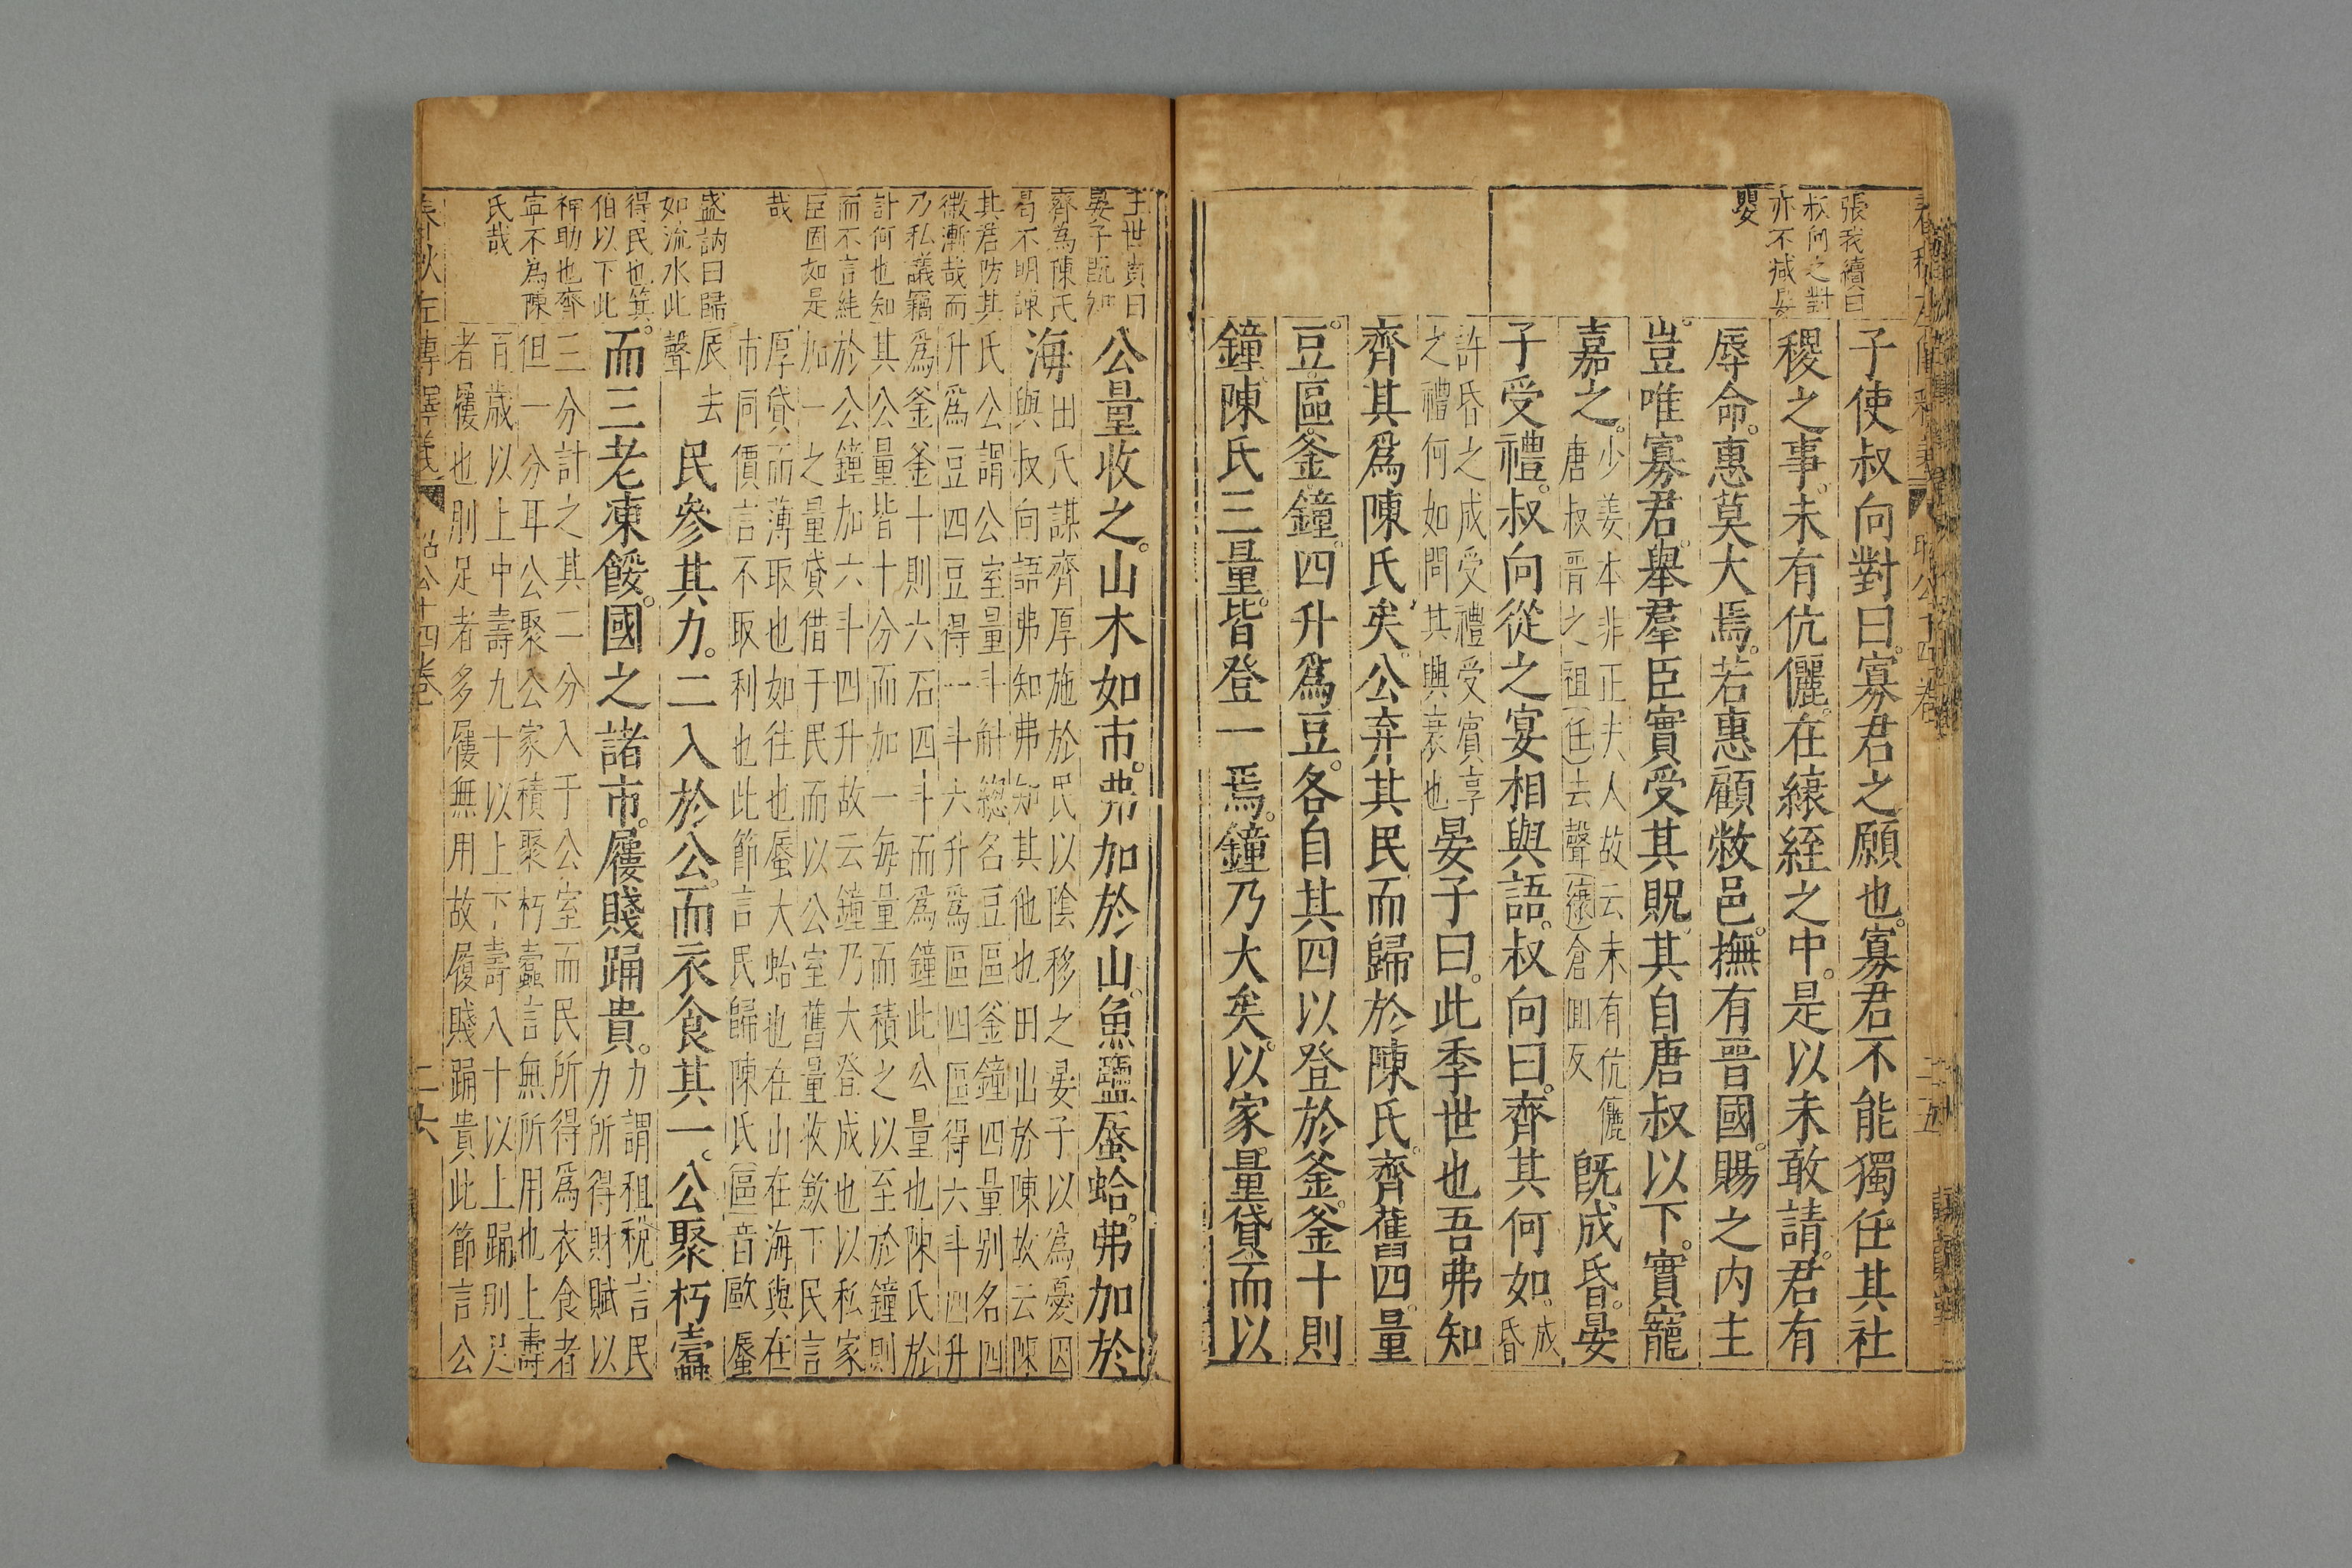 張我續曰
叔向之對
亦不減晏
嬰
子使叔向對曰寡君之願也寡君不能獨任其社
稷之事未有伉儷在縗絰之中是以未敢請君有
辱命惠莫大焉若惠顧敝邑撫有晉國賜之內主
豈唯寡君舉羣臣實受其貺其自唐叔以下實寵
嘉之
少姜本非正夫人故云未有伉儷
唐叔晉之祖任去聲縗倉回反
既成昏晏
子受禮叔向從之宴相與語叔向曰齊其何如
成昏
許昏之成受禮受賓享
之禮何如問其興衰也
晏子曰此季世也吾弗知
齊其爲陳氏矣公弃其民而歸於陳氏齊舊四量
豆區釜鐘四升爲豆各自其四以登於釜釜十則
鐘陳氏三量皆登一焉鐘乃大矣以家量貸而以
王世貞曰
晏子既知
齊為陳氏
曷不明諫
其君防其
微漸哉而
乃私議竊
計何也知
而不言經
臣固如是
哉
盛訥曰歸
如流水此
得民也箕
伯以下此
神助也齊
寜不為陳
氏哉
公量收之山木如市弗加於山魚鹽蜃蛤弗加於
海
田氏謀齊厚施於民以陰移之晏子以為憂因
與叔向語弗知弗知其他也田出於陳故云陳
氏公謂公室量斗斛總名豆區釜鐘四量別名四
升爲豆四豆得一斗六升爲區四區得六斗四升
爲釜釜十則六石四斗而爲鐘此公量也陳氏於
其公量皆十分而加一每量而積之以至於鐘則
於公鐘加六斗四升故云鐘乃大登成也以私家
加一之量貸借于民而以公室舊量收歛下民言
厚貸而薄取也如往也蜃大蛤也在山在海與在
市同價言不取利也此節言民歸陳氏區音歐蜃
辰去
聲
民參其力二入於公而衣食其一公聚朽蠹
而三老凍餒國之諸市屨賤踊貴
力謂租稅言民
力所得財賦以
三分計之其二分入于公室而民所得爲衣食者
但一分耳公聚公家積聚朽蠹言無所用也上壽
百歲以上中壽九十以上下壽八十以上踊刖足
者屨也刖足者多屨無用故履賤踊貴此節言公
春秋左傳釋義
昭公十四卷
二六